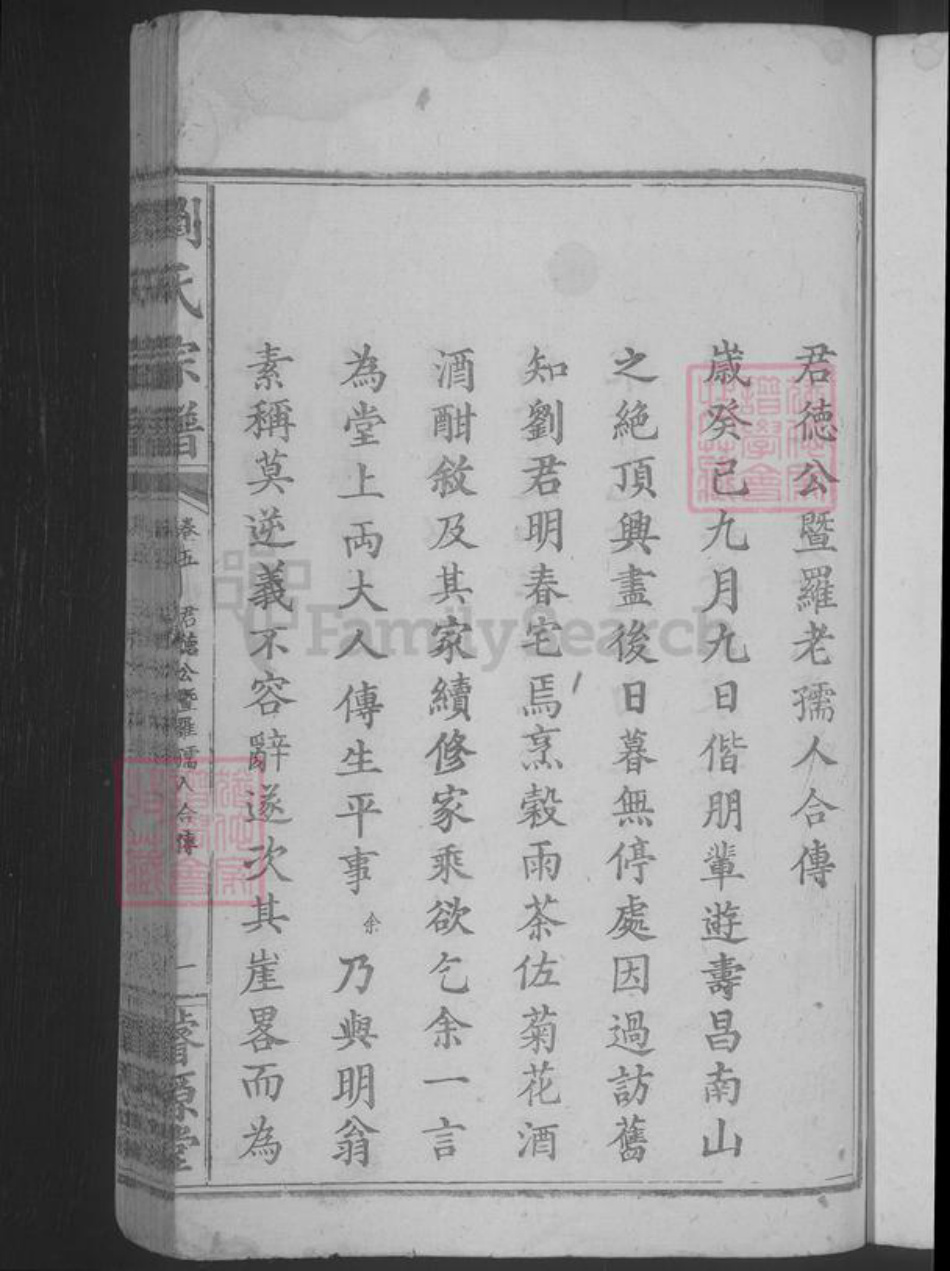 君德公暨羅老孺人合傳
歲癸已九月九日偕朋輩遊壽昌南山
之絶頂興盡後日暮無停處因過訪舊
知劉君明春宅焉烹穀雨茶佐菊花酒
酒酣敘及其家續修家乘欲乞余一言
為堂上兩大人傳生平事余乃與明翁
素稱莫逆義不容辭遂次其崖畧而為
劉氏宗譜
卷五 君德公暨羅孺人合傳
一
睿源堂
FamilySearch